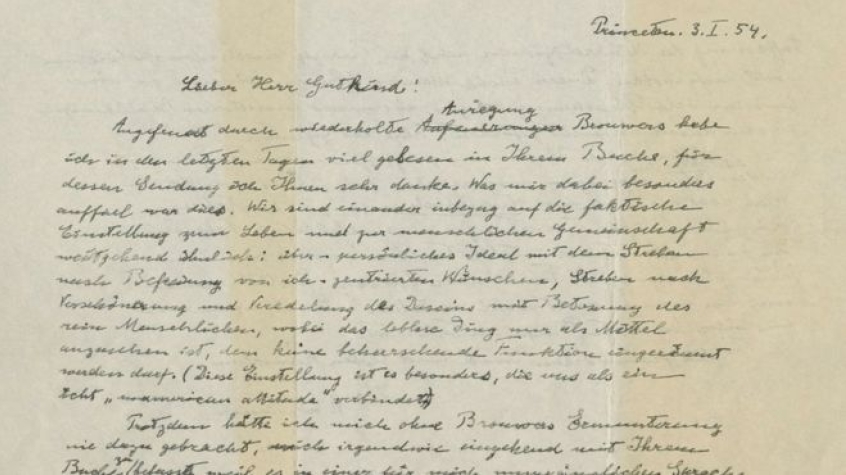 Princeton. 3. I. 54.
Lieber Herr Gutkind!
Anregung
Angefeuert durch wiederholte Brouwers habe
ich in den letzten Tagen viel gelesen in Ihrem Buche, für
dessen Sendung ich Ihnen sehr danke. Was mir dabei besonders
auffiel war dies. Wir sind einander inbezug auf die faktische
Einstellung zum Leben und zur menschlichen Gemeinschaft
weitgehend ähnlich: über-persönliches Ideal mit dem Streben
nach Befreiung von ich-zentrierten Wünschen, Streben nach
Verschönerung und Veredelung des Daseins mit Betonung des
rein Menschlichen, wobei das leblose Ding nur als Mittel
anzusehen ist, dem keine beherrschende Funktion eingeräumt
werden darf. (Diese Einstellung ist es besonders, die uns als ein
echt „unamerican attitude" verbindet)
Trotzdem hätte ich mich ohne Brouwers Ermunterung
nie dazu gebracht, mich irgendwie eingehend mit Ihrem
Buche zu befassen weil es in einer für mich unzugänglichen Sprache